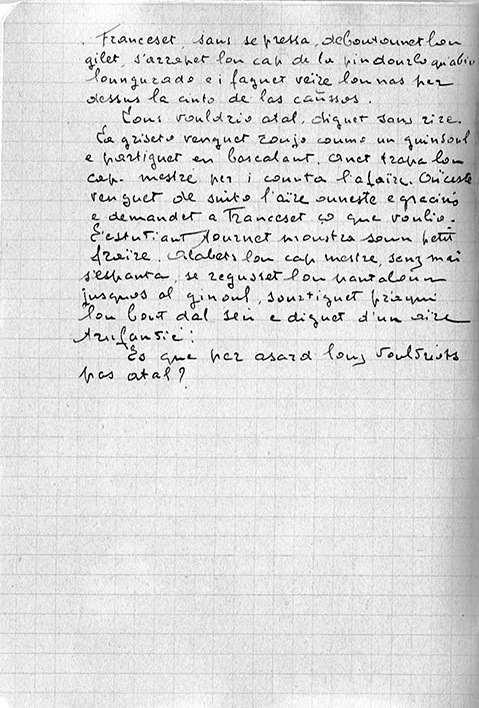 . Franceset, sans se pressa, deboutounet lou
gilet, s'arrapet lou cap de la pindourlo qu'abiu
loungurudo e i faguet veire lou nas per
dessus la cinto de las caússos.
Lous vouldrio atal, diguet sans rire.
La griseto venguet roujo coumo un quinsoul
e partiguet en bascalant. Anet trapa lou
cap. mestre per i counta l'afaire. Oueste
venguet de suito l'aïre ouneste e gracius
e demandet a Franceset ço que voulio.
L'estudiant tournet moustra soun petit
fraire. Alabets lou cap mestre, senz mai
s'espanta, se regusset lou pantaloun
jusquos al ginoul, sourtiguet praqui
lou bout dal seu e diguet d'un aire
trufandié :
Es que per asard lous vouldriots
pas atal ?